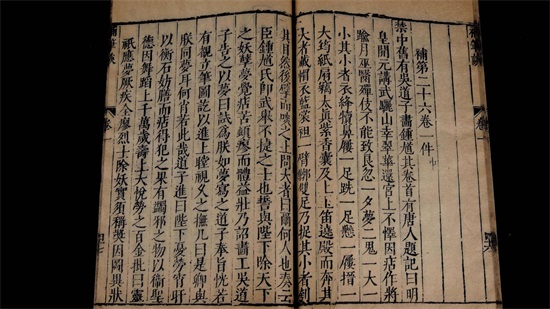 補第二十六卷一件
禁中舊有吳道子畫鍾馗其卷首有唐人題記曰明
皇開元講武驪山幸翠華還宮上不懌因痁作將
踰月巫醫殫伎不能致良忽一夕夢二鬼一大一
小其小者衣絳犢鼻屨一足跣一足懸一屨搢一
大筠紙扇竊太真紫香囊及上玉笛遶殿而奔其
大者戴帽衣藍裳袒一臂鞹雙足乃捉其小者刳
其目然後擘而啖之上問大者曰爾何人也奏云
臣鍾馗氏即武舉不捷之士也誓與陛下除天下
之妖孽夢覺痁苦頓瘳而體益壯乃詔畫工吳道
子告之以夢曰試為朕如夢寫之道子奉旨恍若
有覩立筆圖訖以進上瞠視久之撫几曰是卿與
朕同夢耳何肖若此哉道子進曰陛下憂勞宵旰
以衡石妨膳而痁得犯之果有蠲邪之物以衛聖
德因舞蹈上千萬歲壽上大悅勞之百金批曰靈
祇應夢厥疾全瘳烈士除妖實須稱獎因圖異狀